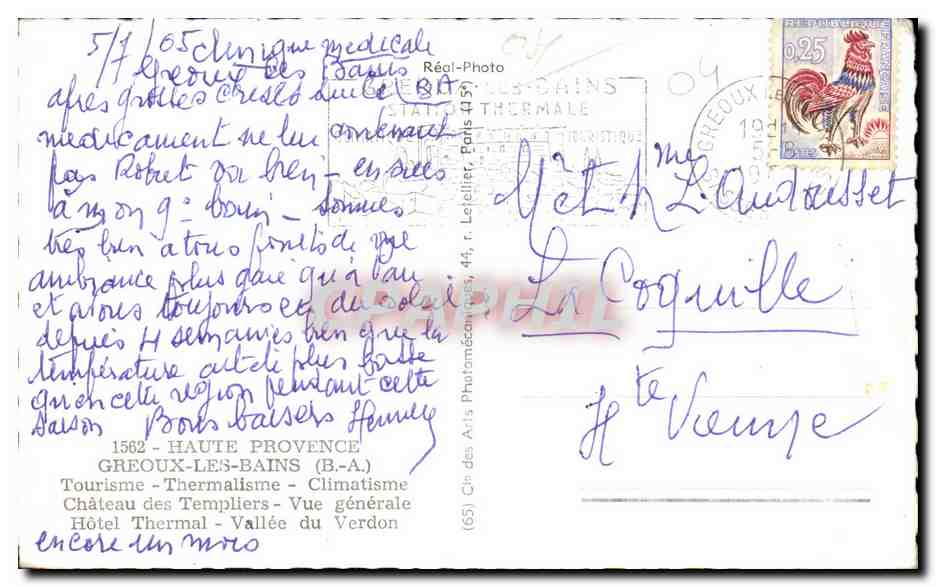 5/7/65 clinique medicale
Greoux les Bains
apres grosses
medicament ne lui convenant
pas Robert va bien - en suis
à mon 9e bain - sommes
très bien a tous points de vue
ambiance plus gaie qu'à
et avons toujours eu du soleil
depuis 4 semaines bien que la
température ait été plus basse
qu'en cette région pendant cette
saison Bons baisers
1562 - HAUTE PROVENCE
GREOUX-LES-BAINS (B.-A.)
Tourisme - Thermalisme - Climatisme
Château des Templiers - Vue générale
Hôtel Thermal - Vallée du Verdon
encore un mois
Réal-Photo
(65) Cie des Arts Photomécaniques, 44, r. Letellier, Paris (15e)
GREOUX-LES-BAINS
STATION THERMALE
TOURISTIQUE
GREOUX LES
REPUBLIQUE FRANÇAISE
0,25
POSTES
Mr et Mme L. Audousset
La Coquille
Hte Vienne
CPAPHIL